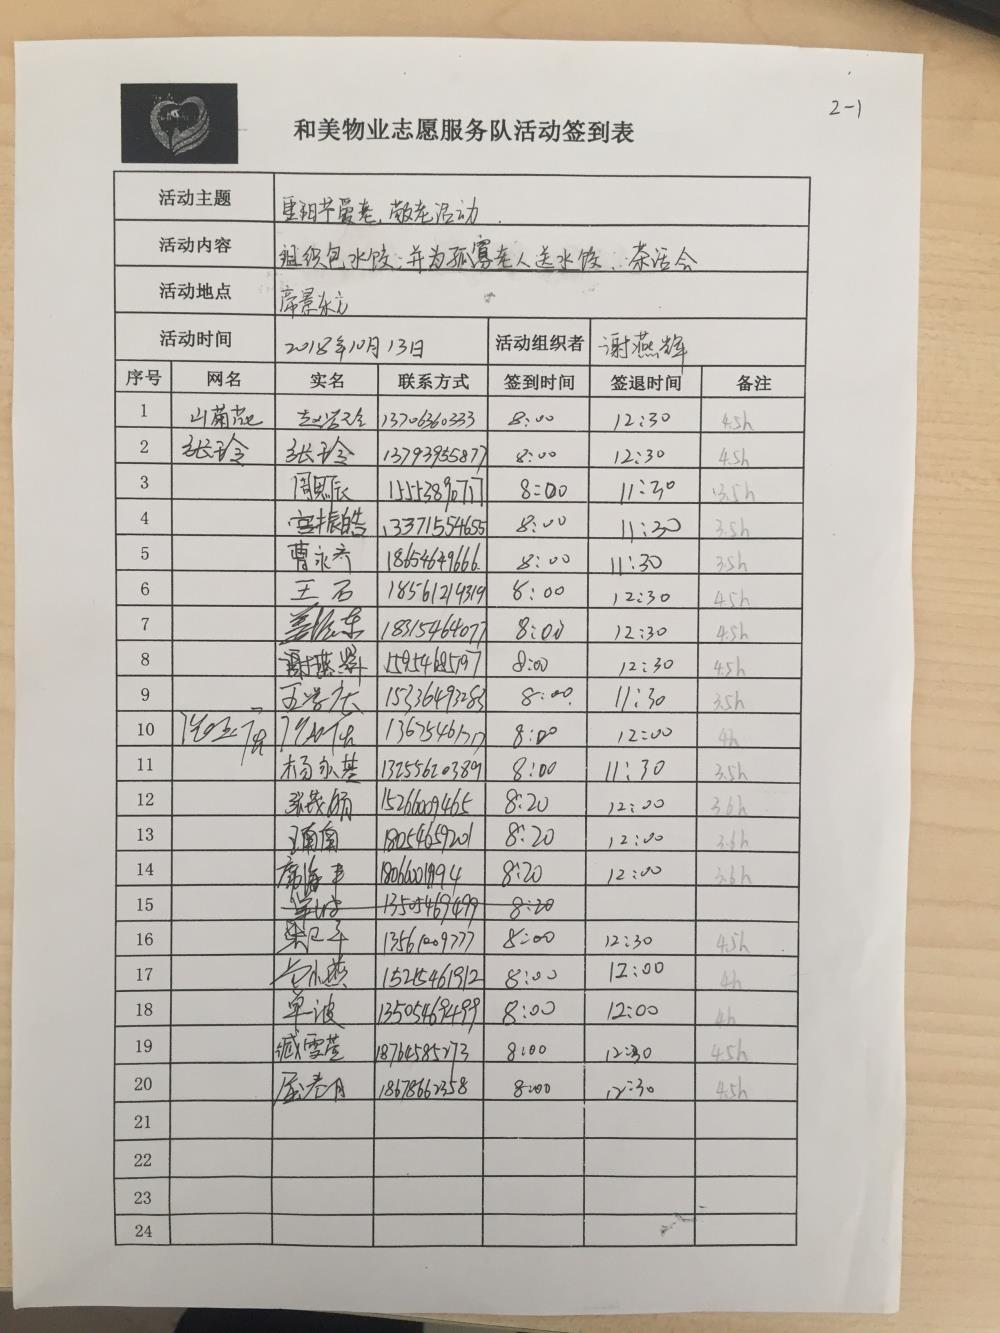 2-1
和美物业志愿服务队活动签到表
活动主题 重阳节爱老、敬老活动
活动内容 组织包水饺,并为孤寡老人送水饺、茶话会
活动地点 帝景东方
活动时间 2018年10月13日 活动组织者 谢燕辉
序号 网名 实名 联系方式 签到时间 签退时间 备注
1 山菊花 13706360333 8:00 12:30 4.5h
2 张玲 张玲 13793955877 8:00 12:30 4.5h
3 周思辰 15553890717 8:00 11:30 3.5h
4 宫振皓 13371554655 8:00 11:30 3.5h
5 曹永齐 18654649666 8:00 11:30 3.5h
6 王石 18561219319 8:00 12:30 4.5h
7 18315464077 8:00 12:30 4.5h
8 15954685197 8:00 12:30 4.5h
9 王学广 15336493283 8:00 11:30 3.5h
10 8:00 12:00 4h
11 杨永基 13255620389 8:00 11:30 3.5h
12 张茂娟 15266009465 8:20 12:00 3.6h
13 王南南 18054659201 8:20 12:00 3.6h
14 8:20 12:00 3.6h
15 单波 13505469499 8:20
16 13561009777 8:00 12:30 4.5h
17 15215461912 8:00 12:00 4h
18 单波 13505469499 8:00 12:00 4h
19 臧雪莹 18764585273 8:00 12:30 4.5h
20 18678662358 8:00 12:30 4.5h
21
22
23
24